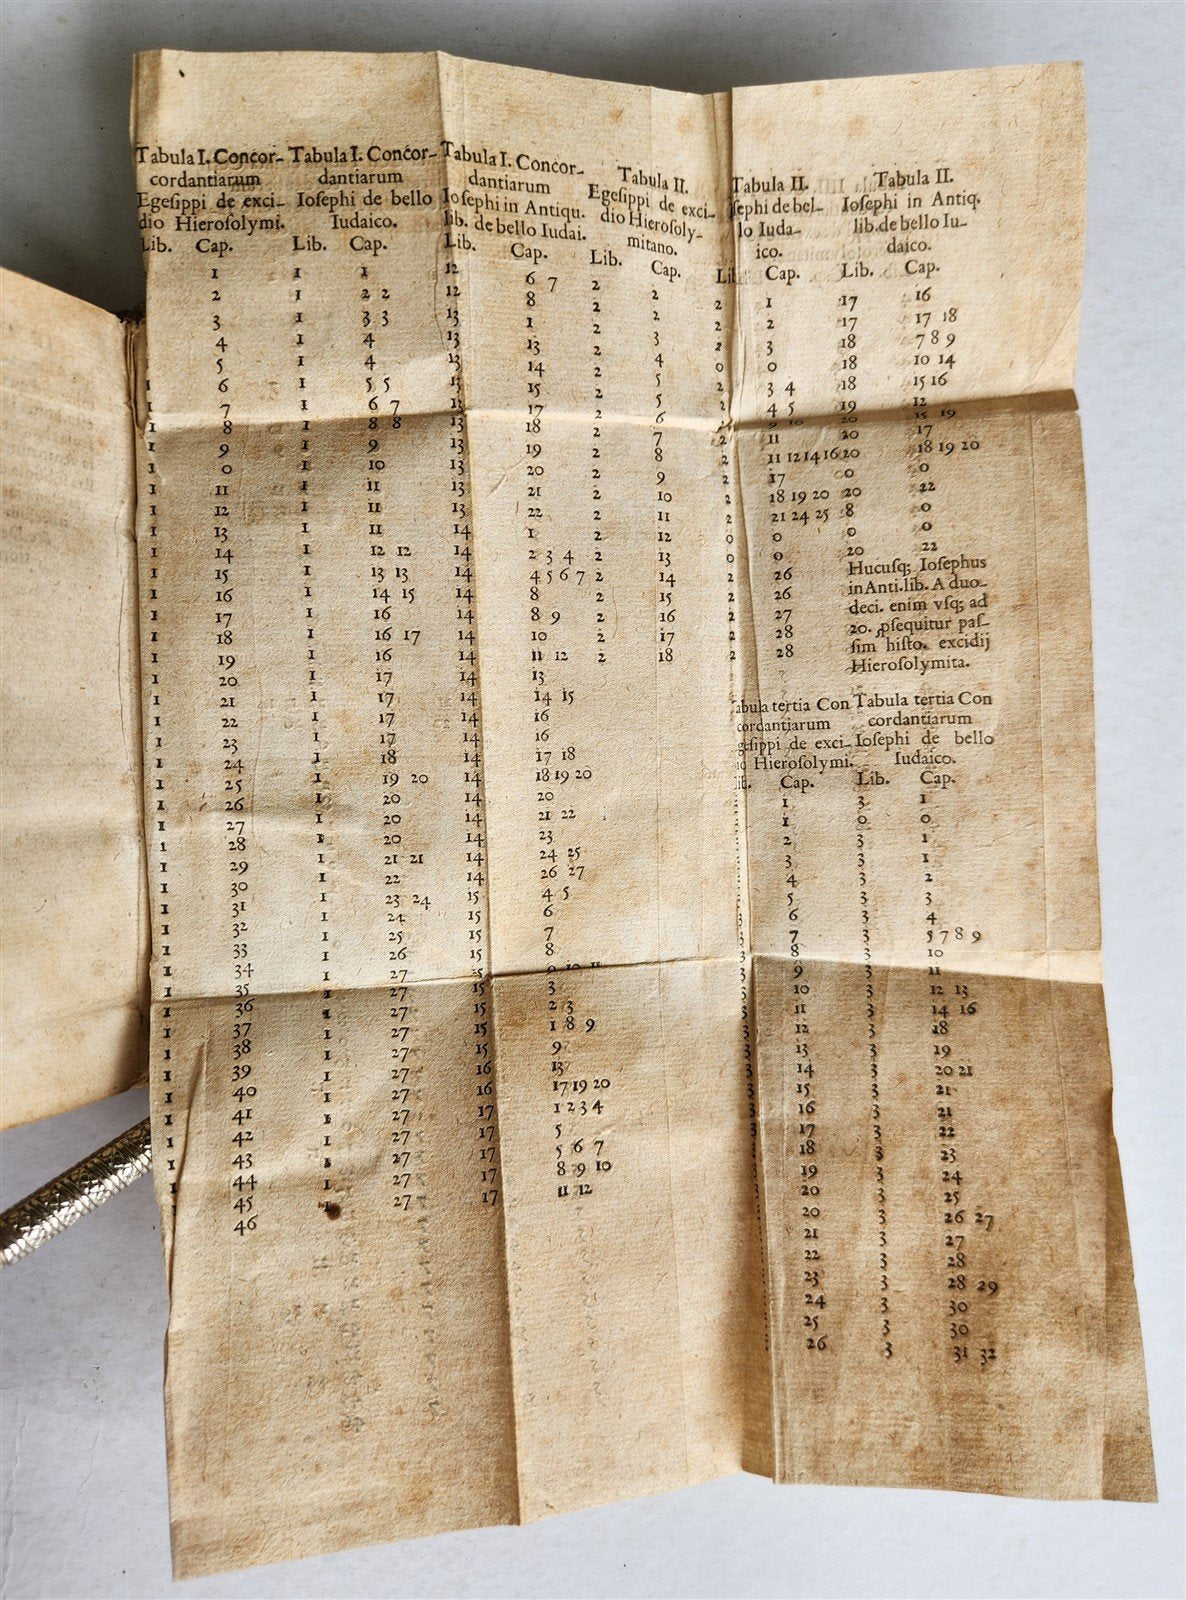 Tabula I. Concor-
cordantiarum
Egesippi de exci-
dio Hierosolymi.
Lib. Cap.
1
2
3
4
5
1 6
1 7
1 8
1 9
1 0
1 11
1 12
1 13
1 14
1 15
1 16
1 17
1 18
1 19
1 20
1 21
1 22
1 23
1 24
1 25
1 26
1 27
1 28
1 29
1 30
1 31
1 32
1 33
1 34
1 35
1 36
1 37
1 38
1 39
1 40
1 41
1 42
1 43
1 44
1 45
46
Tabula I. Concor-
dantiarum
Iosephi de bello
Iudaico.
Lib. Cap.
1 1
1 2 2
1 3 3
1 4
1 4
1 5 5
1 6 7
1 8 8
1 9
1 10
1 11
1 11
1 11
1 12 12
1 13 13
1 14 15
1 16
1 16 17
1 16
1 17
1 17
1 17
1 17
1 18
1 19 20
1 20
1 20
1 20
1 21 21
1 22
1 23 24
1 24
1 25
1 26
1 27
1 27
1 27
1 27
1 27
1 27
1 27
1 27
1 27
1 27
1 27
Tabula I. Concor-
dantiarum
Iosephi in Antiqu.
lib. de bello Iudai.
Lib. Cap.
12 6 7
12 8
13 1
13 13
13 14
13 15
13 17
13 18
13 19
13 20
13 21
13 22
14 1
14 2 3 4
14 4 5 6 7
14 8
14 8 9
14 10
14 11 12
14 13
14 14 15
14 16
14 16
14 17 18
14 18 19 20
14 20
14 21 22
14 23
14 24 25
14 26 27
15 4 5
15 6
15 7
15 8
15 9 10 11
15 3
15 2 3
15 1 8 9
15 9
16 13
16 17 19 20
17 1 2 3 4
17 5
17 5 6 7
17 8 9 10
17 11 12
Tabula II.
Egesippi de exci-
dio Hierosoly-
mitano.
Lib. Cap.
2 2
2 2
2 3
2 4
2 5
2 5
2 6
2 7
2 8
2 9
2 10
2 11
2 12
2 13
2 14
2 15
2 16
2 17
2 18
Tabula II.
sephi de bel-
lo Iuda-
ico.
Li Cap.
2 1
2 2
2 3
0 0
2 3 4
2 4 5
2 9 10
2 11
2 11 12 14 16
2 17
2 18 19 20
2 21 24 25
0 0
0 0
2 26
2 26
2 27
2 28
2 28
Tabula II.
Iosephi in Antiq.
lib. de bello Iu-
daico.
Lib. Cap.
17 16
17 17 18
18 7 8 9
18 10 14
18 15 16
19 12
20 15 19
20 17
20 18 19 20
0 0
20 22
8 0
0 0
20 22
Hucusq; Iosephus
in Anti. lib. A duo-
deci. enim vsq; ad
20. psequitur pas-
sim histo. excidij
Hierosolymita.
abula tertia Con
cordantiarum
gesippi de exci-
io Hierosolymi.
ib. Cap.
1
1
2
3
4
5
6
3 7
3 8
3 9
3 10
3 11
3 12
3 13
3 14
3 15
3 16
3 17
3 18
19
20
20
21
22
23
24
25
26
Tabula tertia Con
cordantiarum
Iosephi de bello
Iudaico.
Lib. Cap.
3 1
0 0
3 1
3 1
3 2
3 3
3 4
3 5 7 8 9
3 10
3 11
3 12 13
3 14 16
3 18
3 19
3 20 21
3 21
3 21
3 22
3 23
3 24
3 25
3 26 27
3 27
3 28
3 28 29
3 30
3 30
3 31 32